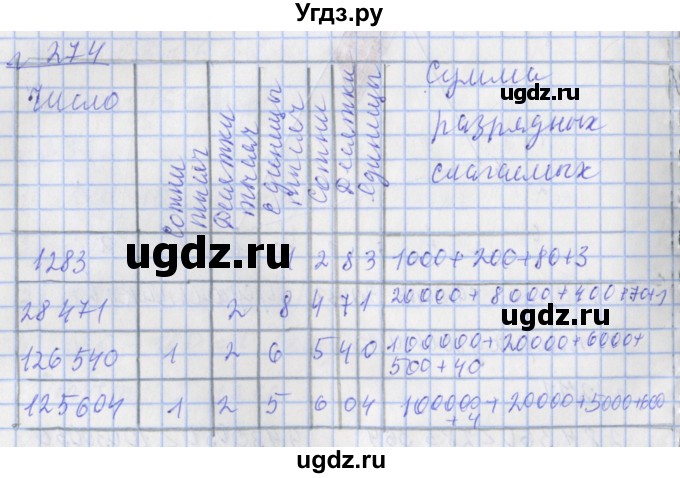 Угдз.ру
274
Число
Сотни тысяч
Десятки тысяч
Единицы тысяч
Сотни
Десятки
Единицы
Сумма
разрядных
слагаемых
ugdz.ru
ugdz.ru
1283 1 2 8 3 1000 + 200 + 80 + 3
ugdz.ru
28 471 2 8 4 7 1 20000 + 8000 + 400 + 70 + 1
ugdz.ru
126 540 1 2 6 5 4 0 100000 + 20000 + 6000 +
500 + 40
ugdz.ru
125604 1 2 5 6 0 4 100000 + 20000 + 5000 + 600
+ 4
ugdz.ru